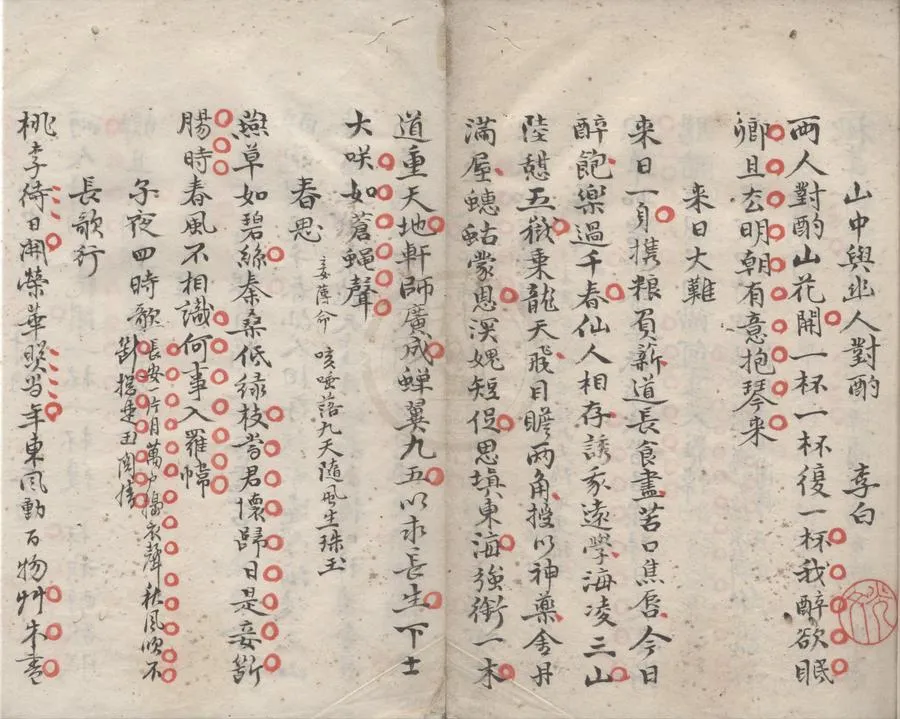 山中與幽人對酌 李白
兩人對酌山花開一杯一杯復一杯我醉欲眠
卿且去明朝有意抱琴来
来日大難
来日一身携粮負薪道長食盡苦口焦唇今日
醉飽樂過千春仙人相存誘我遠學海凌三山
陸憩五嶽乗龍天飛目瞻兩角授以神藥金丹
滿屋蟪蛄蒙恩深媿短促思填東海強銜一木
道重天地軒師廣成蟬翼九五以求長生下士
大咲如蒼蝿聲
春思 妾薄命 咳唾落九天隨風生珠玉
燕草如碧絲秦桑低緑枝當君懷歸日是妾斷
腸時春風不相識何事入羅幃
子夜四時歌 長安一片月萬戶擣衣聲秋風吹不
盡總是玉關情
長歌行
桃李待日開榮華照当年東風動百物艸木盡